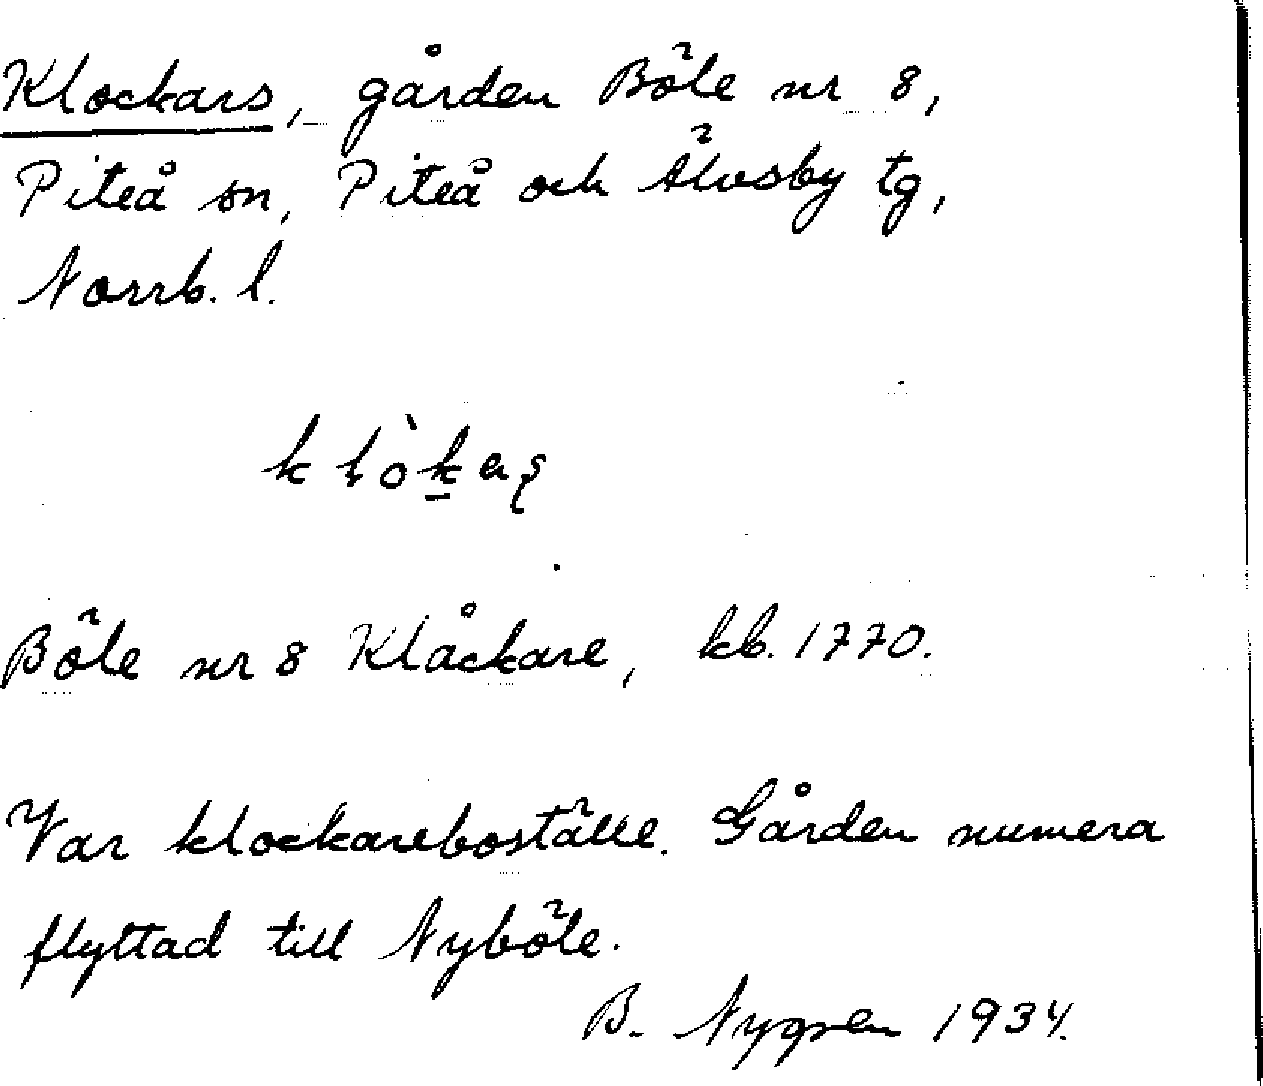 Klockars, gården Böle nr 8,
Piteå sn, Piteå och Älvsby tg,
Norrb. l.
Böle nr 8 Klåckare, kb. 1770.
Var klockareboställe. Gården numera
flyttad till Nyböle.
B. Nygren 1934.